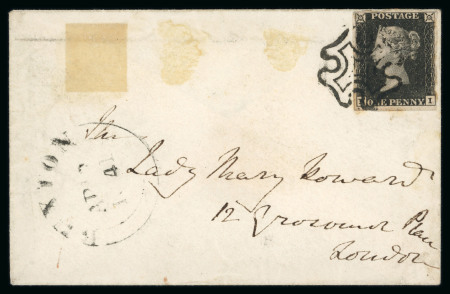 POSTAGE
ONE PENNY I
The
Lady Mary Howard
12 Grosvenor Place
London
BUXTON
1841